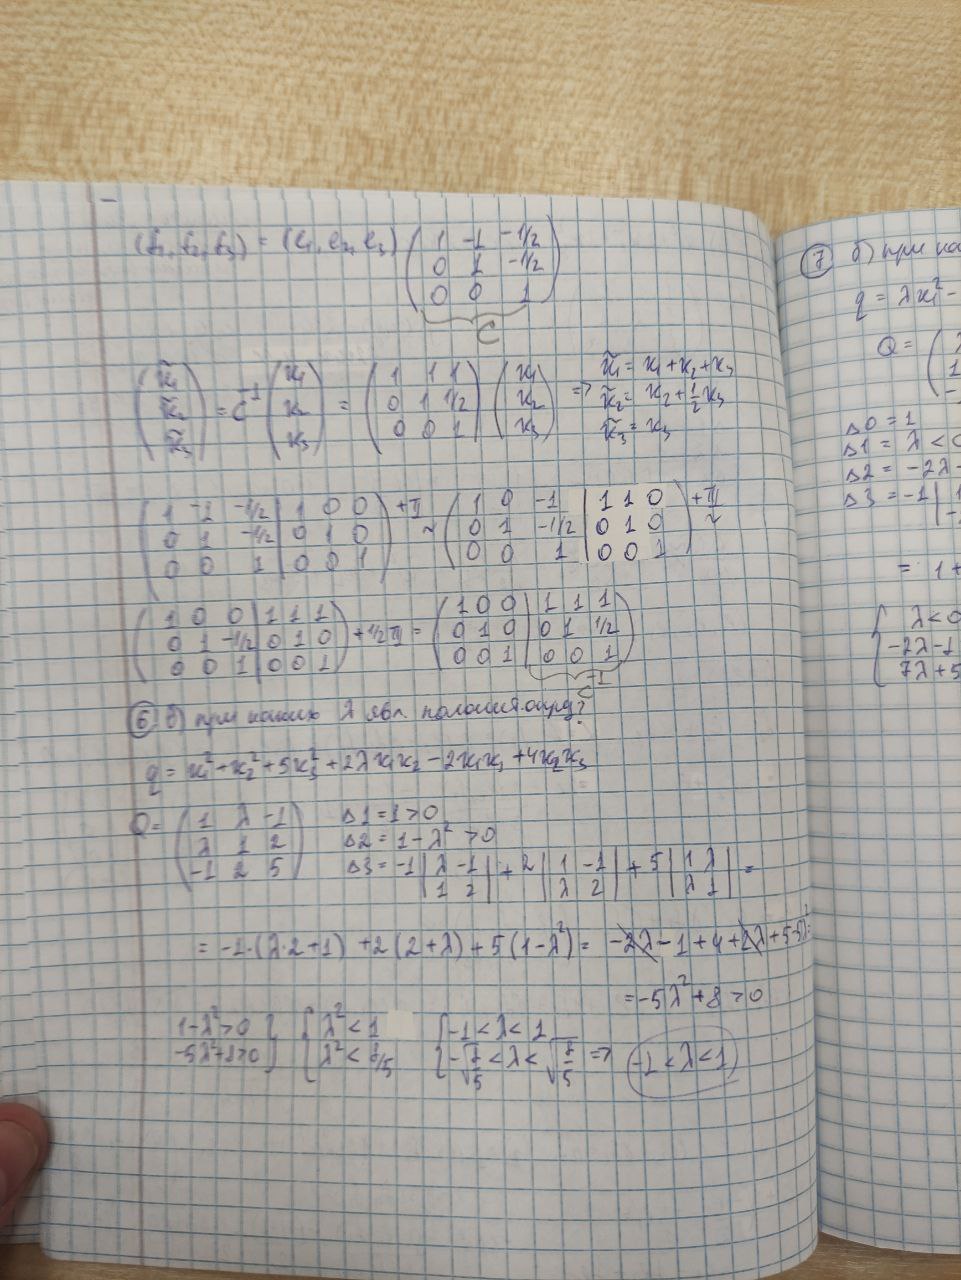 (f₁, f₂, f₃) = (e₁, e₂, e₃) (1 -1 -1/2
0 1 -1/2
0 0 1)
C
(x̃₁ x̃₂ x̃₃) = C⁻¹ (x₁ x₂ x₃) = (1 1 1
0 1 1/2
0 0 1) (x₁ x₂ x₃) => x̃₁ = x₁ + x₂ + x₃
x̃₂ = x₂ + 1/2 x₃
x̃₃ = x₃
(1 -1 -1/2 | 1 0 0
0 1 -1/2 | 0 1 0
0 0 1 | 0 0 1) + II ~ (1 0 -1 | 1 1 0
0 1 -1/2 | 0 1 0
0 0 1 | 0 0 1) + III ~
(1 0 0 | 1 1 1
0 1 -1/2 | 0 1 0
0 0 1 | 0 0 1) + 1/2 III = (1 0 0 | 1 1 1
0 1 0 | 0 1 1/2
0 0 1 | 0 0 1)
C⁻¹
⑥ б) при каких λ явл. положит. опред?
q = x₁² + x₂² + 5x₃² + 2λx₁x₂ - 2x₁x₃ + 4x₂x₃
Q = (1 λ -1
λ 1 2
-1 2 5)
Δ1 = 1 > 0
Δ2 = 1 - λ² > 0
Δ3 = -1 |λ -1
1 2| + 2 |1 -1
λ 2| + 5 |1 λ
λ 1| =
= -1·(λ·2+1) + 2(2+λ) + 5(1-λ²) = -2λ - 1 + 4 + 2λ + 5 - 5λ² =
= -5λ² + 8 > 0
1-λ²>0
-5λ²+8>0} {λ² < 1
λ² < 8/5 {-1 < λ < 1
-√8/5 < λ < √8/5 => -1 < λ < 1
⑦ б) при
q = λx₁² -
Q = (λ
1
-
Δ0 = 1
Δ1 = λ <
Δ2 = -2λ -
Δ3 = -1 |1
= 1 +
{λ < 0
-2λ-1
7λ+5